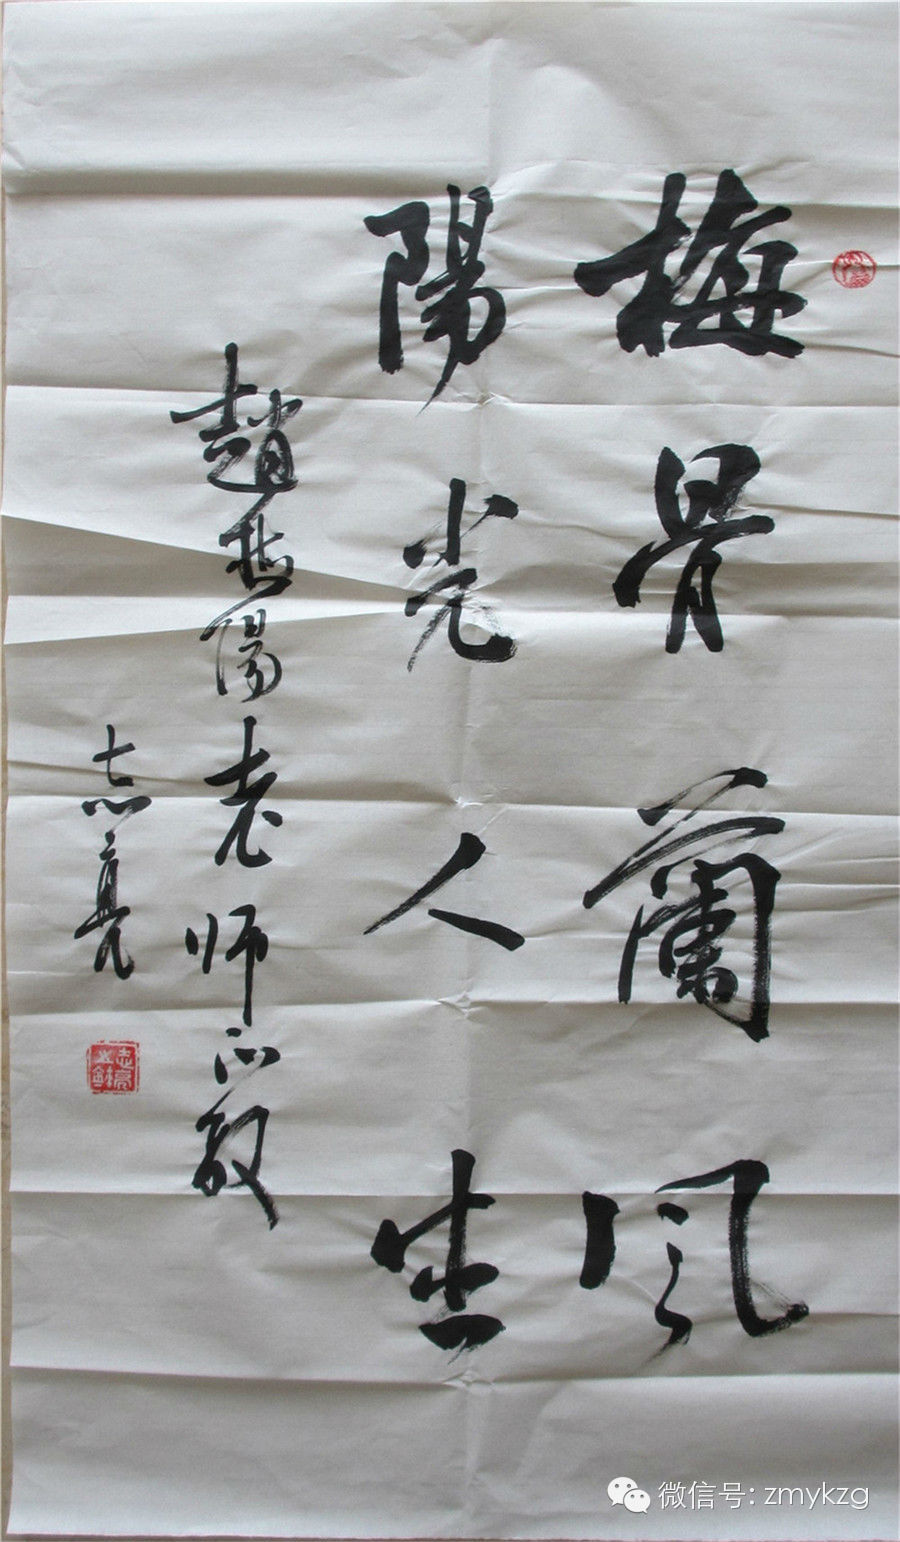 梅骨蘭風
陽光人生
趙越陽老師正
志亮
微信号: zmykzg